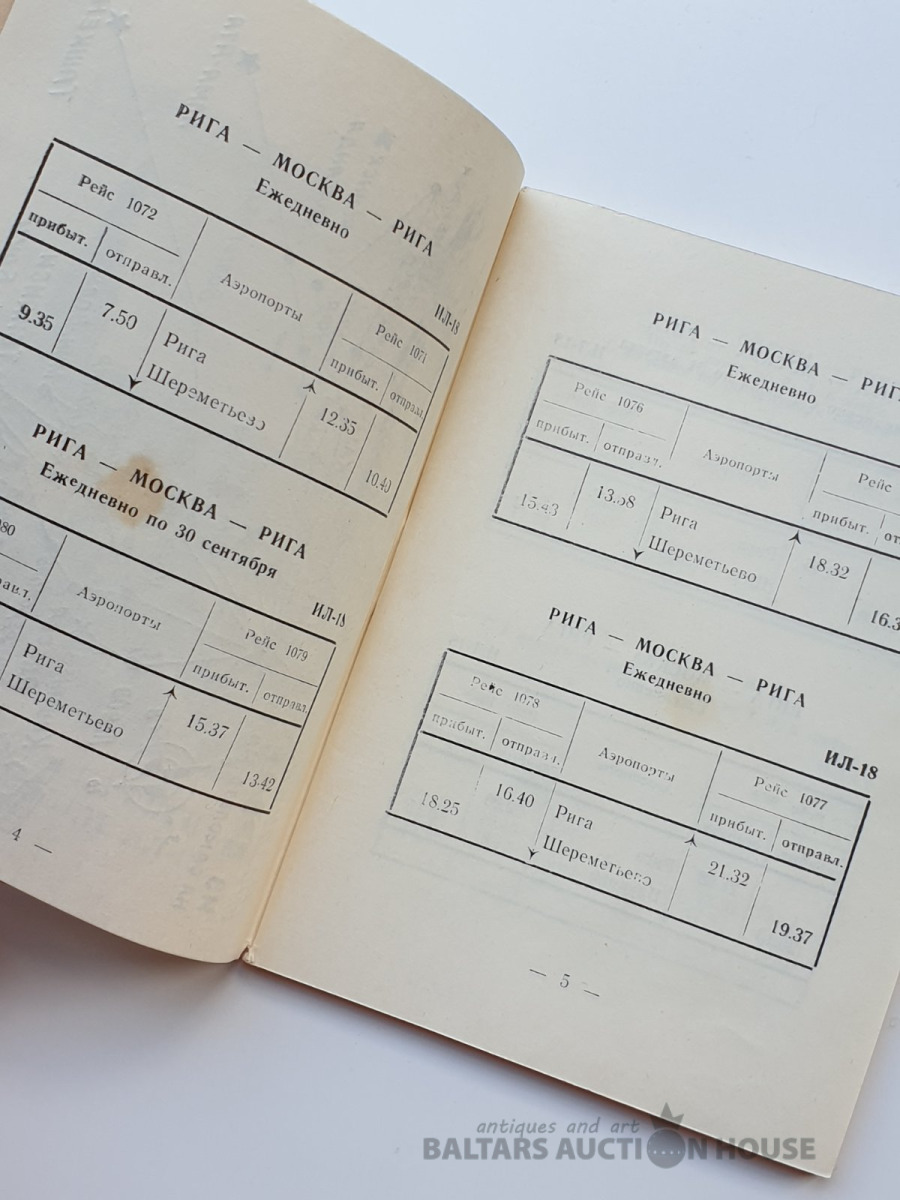 РИГА — МОСКВА — РИГА
Ежедневно
ИЛ-18
Рейс 1072
Аэропорты
Рейс 1071
прибыт.
отправл.
прибыт.
отправл.
9.35
7.50
Рига
Шереметьево
12.35
10.40
РИГА — МОСКВА — РИГА
Ежедневно по 30 сентября
ИЛ-18
Аэропорты
Рейс 1079
прибыт.
отправл.
Рига
Шереметьево
15.37
13.42
4 —
РИГА — МОСКВА —
Ежедневно
Рейс 1076
Аэропорты
Рейс
прибыт.
отправл.
прибыт.
15.43
Рига
Шереметьево
18.32
РИГА — МОСКВА — РИГА
Ежедневно
ИЛ-18
Рейс 1078
Аэропорты
Рейс 1077
прибыт.
отправл.
прибыт.
отправл.
18.25
16.40
Рига
Шереметьево
21.32
19.37
— 5 —
antiques and art
BALTARS AUCTION HOUSE